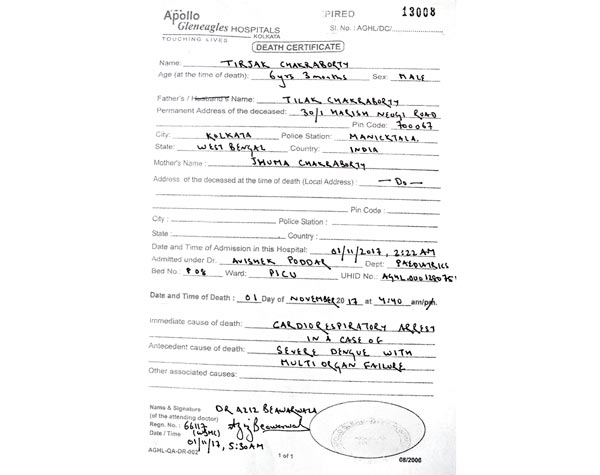 Apollo
Gleneagles HOSPITALS
KOLKATA
TOUCHING LIVES
PIRED 13008
Sl. No. : AGHL/DC/
DEATH CERTIFICATE
Name: TIRJAK CHAKRABORTY
Age (at the time of death): 6 yrs 3 months Sex: MALE
Father's / Husband's Name: TILAK CHAKRABORTY
Permanent Address of the deceased: 30/1 HARISH NEOGI ROAD
Pin Code: 700067
City: KOLKATA Police Station: MANICKTALA
State: WEST BENGAL Country: INDIA
Mother's Name: JHUMA CHAKRABORTY
Address of the deceased at the time of death (Local Address) : — Do —
Pin Code :
City : Police Station :
State : Country :
Date and Time of Admission in this Hospital: 01/11/2017, 2:22 AM
Admitted under Dr. AVISHEK PODDAR Dept: PAEDIATRICS
Bed No.: P 08 Ward: PICU UHID No.: AGHL.000128075
Date and Time of Death : 01 Day of NOVEMBER 2017 at 4:40 am/pm.
Immediate cause of death: CARDIORESPIRATORY ARREST
IN A CASE OF
Antecedent cause of death: SEVERE DENGUE WITH
MULTI ORGAN FAILURE
Other associated causes:
Name & Signature DR AZIZ BEAWARWALA
(of the attending doctor)
Regn. No.: 66117
Date / Time (WBMC)
01/11/17, 5:30AM
AGHL-QA-DR-002 1 of 1 08/2006